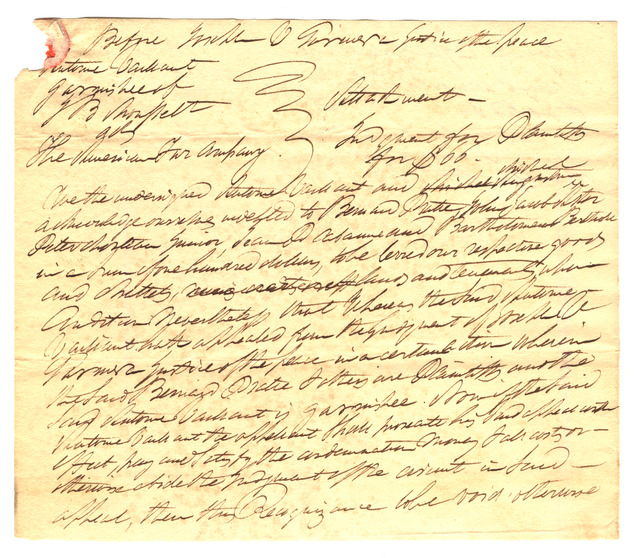 Before Joseph V Garnier a Justice of the peace
Antoine Vachant
garnishee of
J B
ads
Attachment —
The American Fur Company.
Judgment for Plaintiffs
for $00 -
We the undersigned Antoine Vachant and Michael
acknowledge ourselves indebted to Bernard Pratte, John Jacob Astor
Pierre Chouteau Junior, Jean P Cabanne and Bartholomew Berthold
in a sum of one hundred dollars, to be levied on our respective goods
and chattels, lands and tenements, upon
Condition Nevertheless that Whereas the said Antoine
Vachant hath appealed from the Judgment of Joseph V
Garnier a Justice of the peace in a certain action wherein
the said Bernard Pratte & others are Plaintiffs and the
said Antoine Vachant is garnishee. Now if the said
Antoine Vachant the appellant shall prosecute his said appeal with
effect, pay and satisfy the condemnation money & all costs or
otherwise abide the Judgment of the circuit in said
appeal, then this Recognizance to be void. otherwise